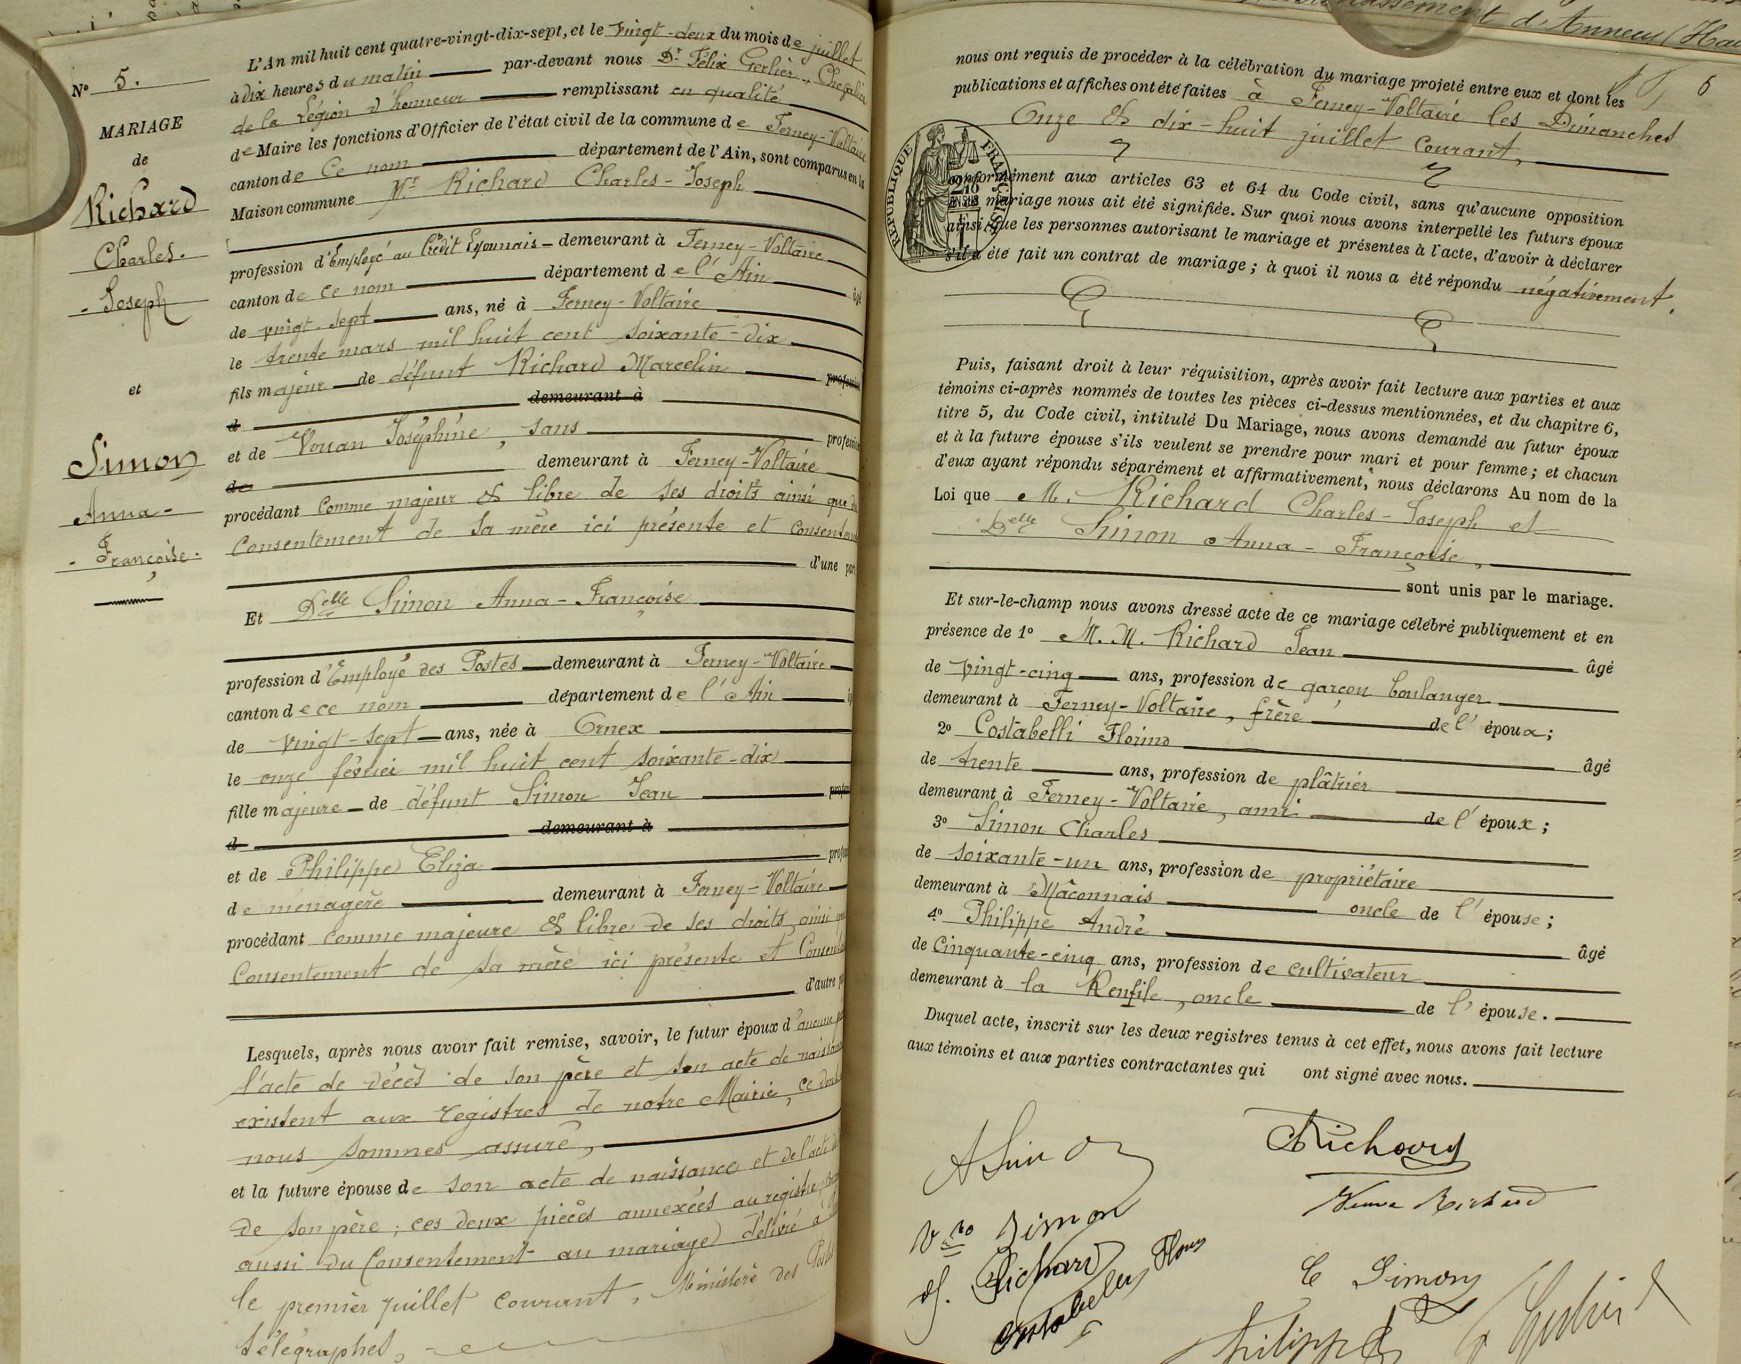 N° 5.
MARIAGE
de
Richard
Charles.
- Joseph
et
Simon
Anna -
- Françoise.
L'An mil huit cent quatre-vingt-dix-sept, et le vingt-deux du mois de juillet
à dix heures du matin par-devant nous Dr Félix Gerlier, Chevalier
de la Légion d'honneur remplissant en qualité
de Maire les fonctions d'Officier de l'état civil de la commune de Ferney-Voltaire
canton de Ce nom département de l'Ain, sont comparus en la
Maison commune Mr Richard Charles-Joseph
profession d'Employé au Crédit Lyonnais - demeurant à Ferney-Voltaire
canton de ce nom département de l'Ain âgé
de vingt-sept ans, né à Ferney-Voltaire
le trente mars mil huit cent soixante-dix
fils majeur de défunt Richard Marcelin profession
d demeurant à
et de Vouan Joséphine, sans profession
de demeurant à Ferney-Voltaire
procédant comme majeur & libre de ses droits ainsi que du
Consentement de sa mère ici présente et consentante
d'une part
Et Delle Simon Anna-Françoise
profession d'Employé des Postes demeurant à Ferney-Voltaire
canton de ce nom département de l'Ain
de vingt-sept ans, née à Ornex
le onze février mil huit cent soixante-dix
fille majeure de défunt Simon Jean
d demeurant à
et de Philippe Eliza
de ménagère demeurant à Ferney-Voltaire
procédant comme majeure & libre de ses droits ainsi que
Consentement de sa mère ici présente et
d'autre part
Lesquels, après nous avoir fait remise, savoir, le futur époux d'aucune
l'acte de décès de son père et son acte de naissance
existent aux registres de notre Mairie, ce dont
nous sommes assuré,
et la future épouse de son acte de naissance et de l'acte
de son père; ces deux pièces annexées au registre
aussi du Consentement au mariage délivré à
le premier juillet courant, Ministère des Postes
télégraphes,
6
nous ont requis de procéder à la célébration du mariage projeté entre eux et dont les
publications et affiches ont été faites à Ferney-Voltaire les Dimanches
Onze & dix-huit juillet courant,
RÉPUBLIQUE FRANÇAISE
conformément aux articles 63 et 64 du Code civil, sans qu'aucune opposition
mariage nous ait été signifiée. Sur quoi nous avons interpellé les futurs époux
ainsi que les personnes autorisant le mariage et présentes à l'acte, d'avoir à déclarer
s'il a été fait un contrat de mariage; à quoi il nous a été répondu negativement.
Puis, faisant droit à leur réquisition, après avoir fait lecture aux parties et aux
témoins ci-après nommés de toutes les pièces ci-dessus mentionnées, et du chapitre 6,
titre 5, du Code civil, intitulé Du Mariage, nous avons demandé au futur époux
et à la future épouse s'ils veulent se prendre pour mari et pour femme; et chacun
d'eux ayant répondu séparément et affirmativement, nous déclarons Au nom de la
Loi que M. Richard Charles-Joseph et
Delle Simon Anna-Françoise,
sont unis par le mariage.
Et sur-le-champ nous avons dressé acte de ce mariage célébré publiquement et en
présence de 1° M.M. Richard Jean âgé
de vingt-cinq ans, profession de garçon boulanger
demeurant à Ferney-Voltaire, frère de l'époux;
2° Costabelli Florino âgé
de trente ans, profession de plâtrier
demeurant à Ferney-Voltaire, ami de l'époux;
3° Simon Charles
de soixante-un ans, profession de propriétaire
demeurant à Mâconnais oncle de l'épouse;
4° Philippe André âgé
de cinquante-cinq ans, profession de cultivateur
demeurant à la Renfile, oncle de l'épouse.
Duquel acte, inscrit sur les deux registres tenus à cet effet, nous avons fait lecture
aux témoins et aux parties contractantes qui ont signé avec nous.
A Simon Richard
Vve Simon Veuve Richard
J. Richard
C Simon
Philippe